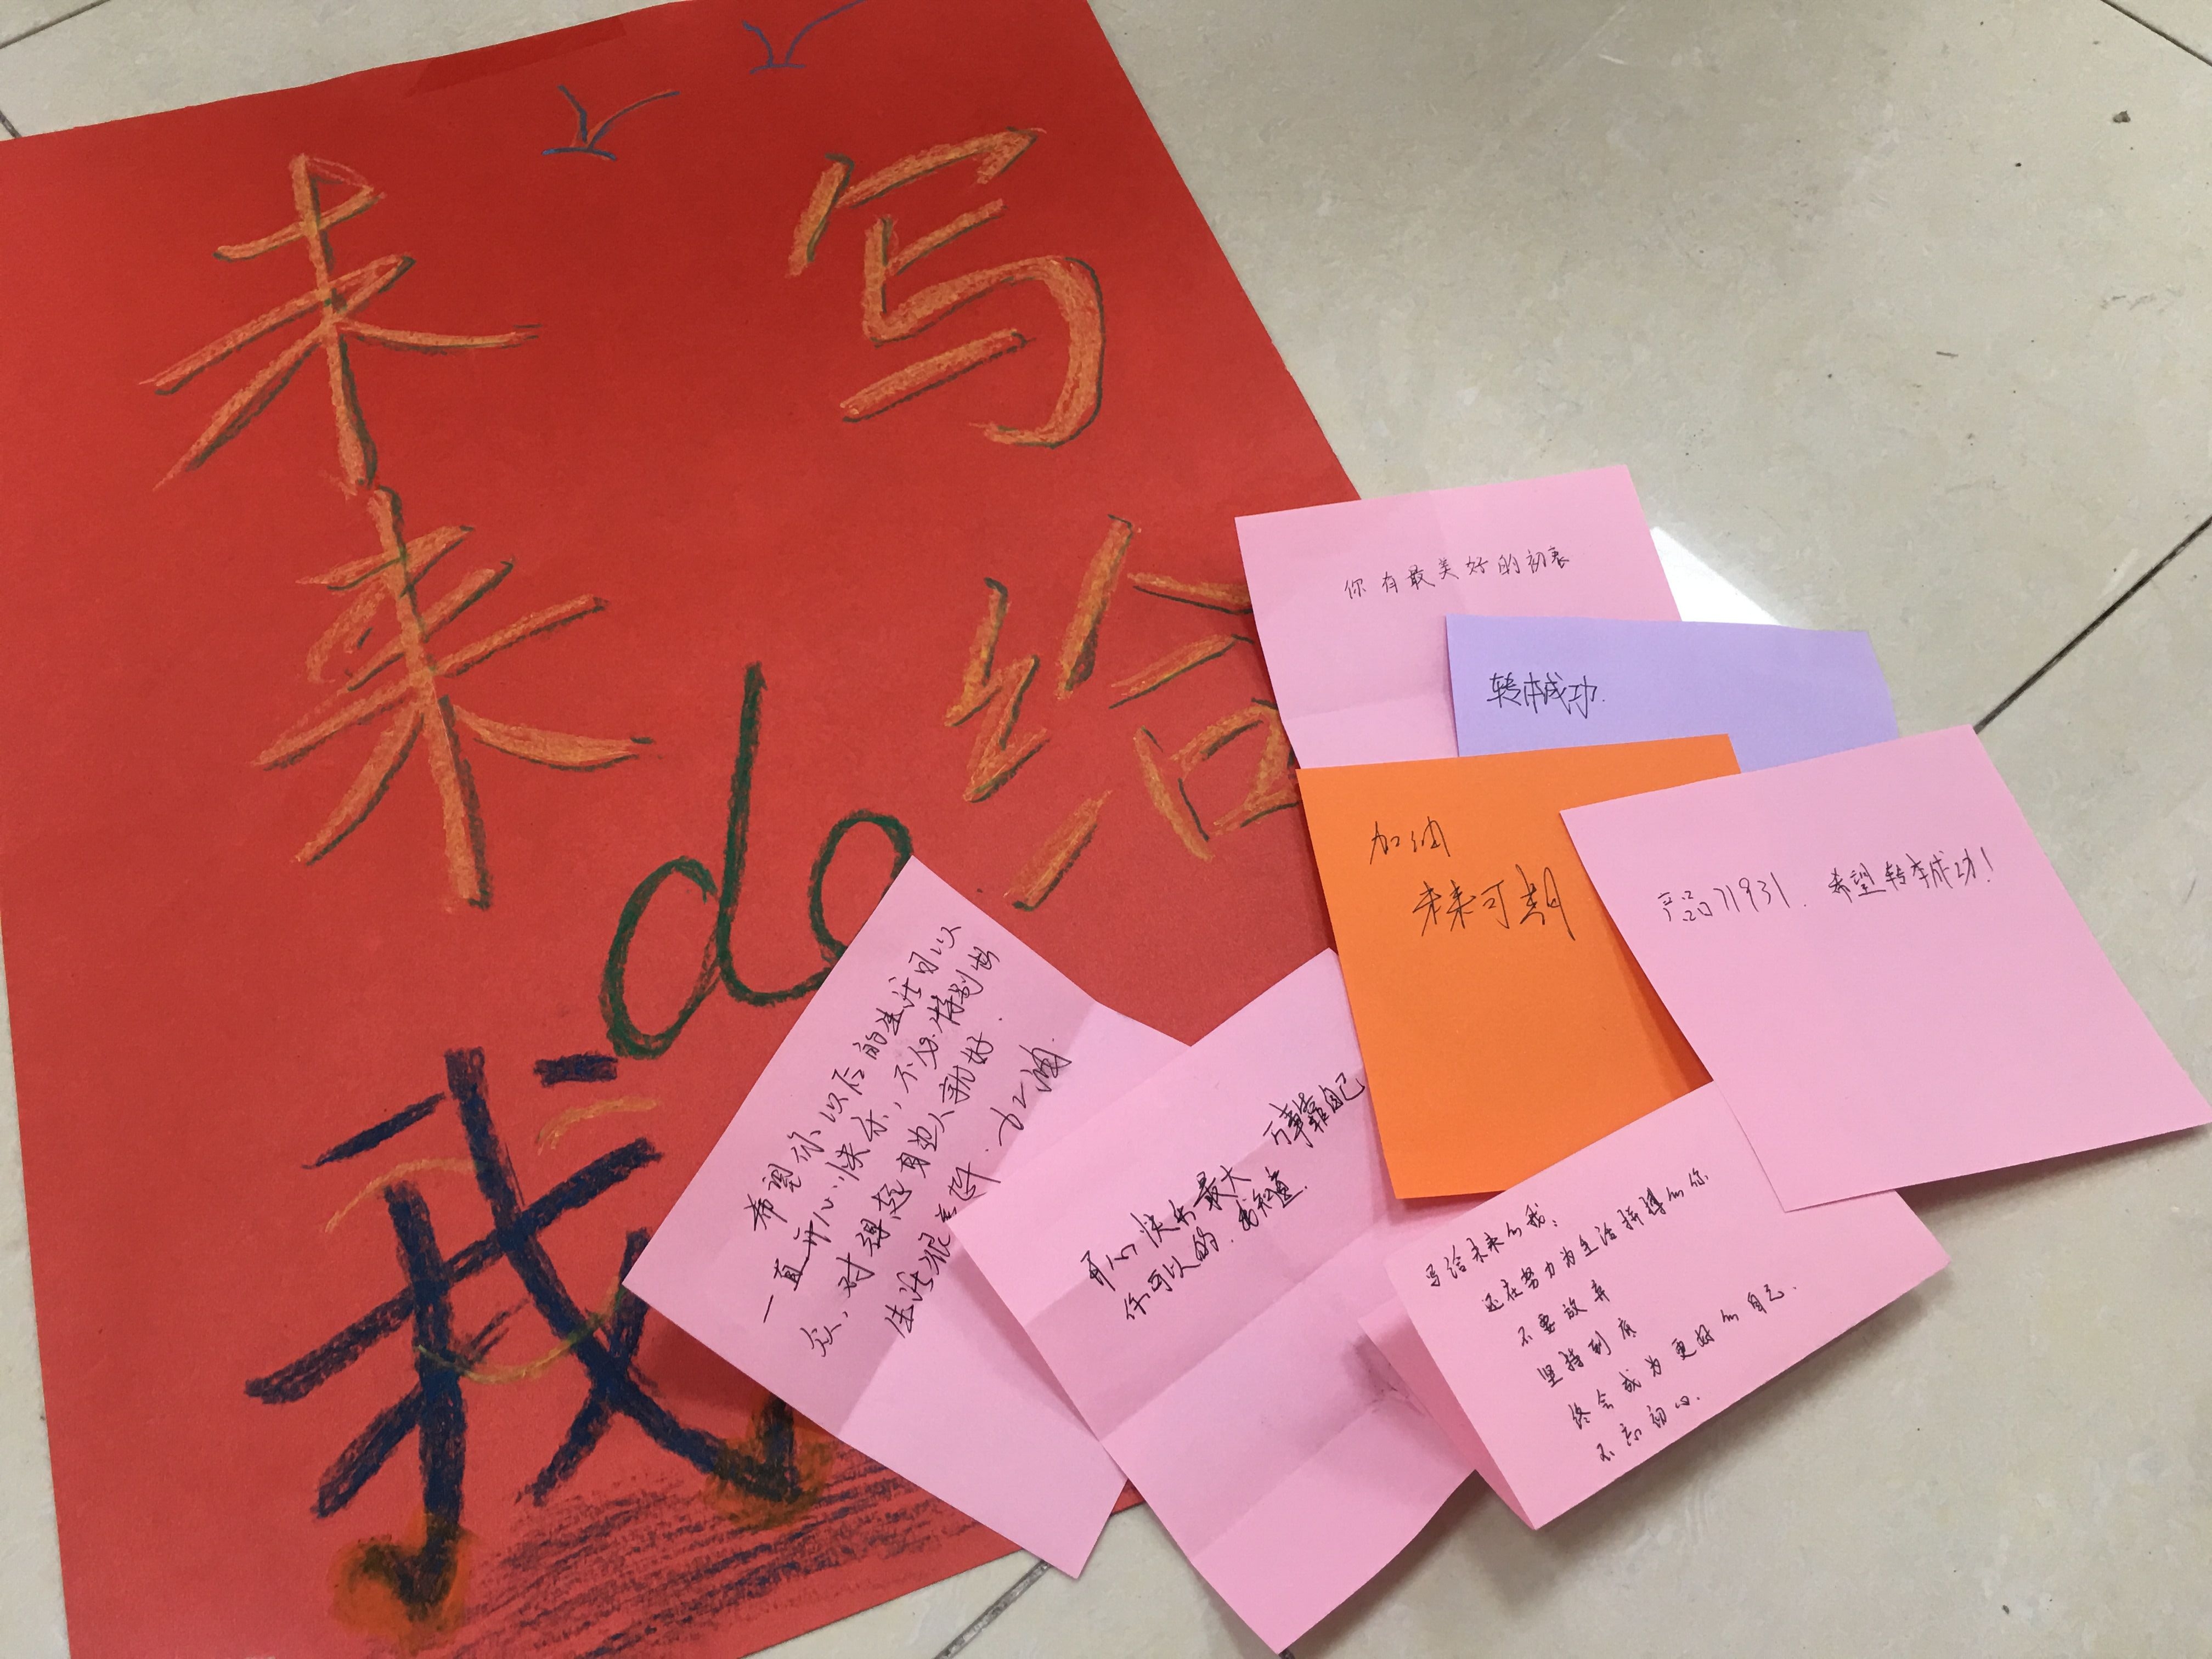 写给
未来
de
我
你有最美好的初衷
转本成功.
加油
未来可期
产品71931. 希望转本成功!
希望你以后的生活可以
一直开心快乐,不必特别出
众,对得起身边人就好.
生活很 加油.
开心快乐最大 万事靠自己
你可以的.我知道.
写给未来的我:
还在努力为生活拼搏的你
不要放弃
坚持到底
终会成为更好的自己.
不忘初心.